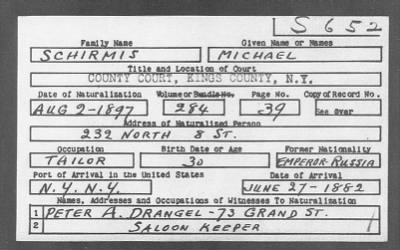 S 652
Family Name Given Name or Names
SCHIRMIS MICHAEL
Title and Location of Court
COUNTY COURT, KINGS COUNTY, N.Y.
Date of Naturalization Volume or Bundle No. Page No. Copy of Record No.
AUG 2-1897 284 39 See Over
Address of Naturalized Person
232 NORTH 8 ST.
Occupation Birth Date or Age Former Nationality
TAILOR 30 EMPEROR-RUSSIA
Port of Arrival in the United States Date of Arrival
N.Y. N.Y. JUNE 27-1882
Names, Addresses and Occupations of Witnesses To Naturalization
1 PETER A. DRANGEL-73 GRAND ST.
2 SALOON KEEPER